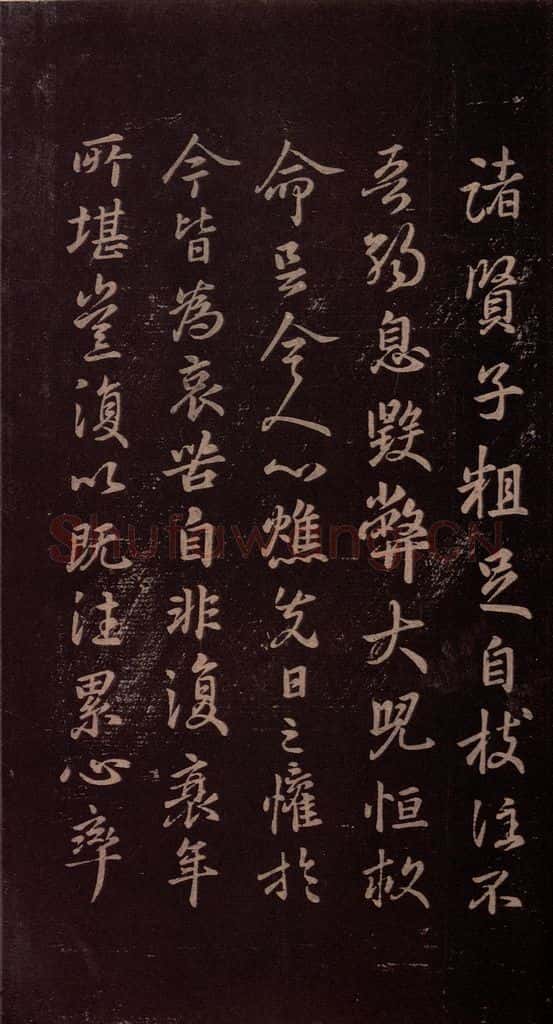 諸賢子粗足自枝注不
吾弱息毀弊大兒恒救
命呈令人心燋先日之懽於
今皆為哀苦自非復衰年
所堪豈復以既往累心率
Shufawang.CN